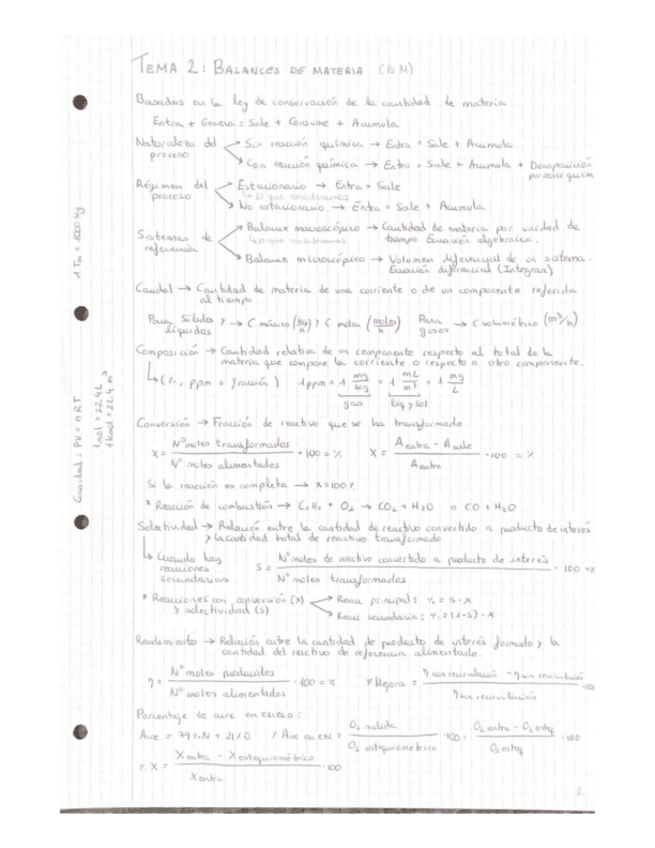 TEMA 2: BALANCES DE MATERIA (BM)
Basados en la ley de conservación de la cantidad de materia
Entra + Genera = Sale + Consume + Acumula
Naturaleza del proceso
Sin reacción química → Entra = Sale + Acumula
Con reacción química → Entra = Sale + Acumula + Desaparición por reac quím
Régimen del proceso
Estacionario → Entra = Sale
No estacionario → Entra = Sale + Acumula
Sistemas de referencia
Balance macroscópico → Cantidad de materia por unidad de tiempo Ecuación algebraica.
Balance microscópico → Volumen diferencial de un sistema. Ecuación diferencial (Integrar)
1 Tm = 1000 kg
Caudal → Cantidad de materia de una corriente o de un componente referida al tiempo
Para sólidos y líquidos → C másico (kg/h) y C molar (moles/h) Para gases → C volumétrico (m³/h)
Composición → Cantidad relativa de un componente respecto al total de la materia que compone la corriente o respecto a otro componente.
(%, ppm o fracción) 1ppm = 1 mg/kg = 1 mL/m³ = 1 mg/L
gas liq y sol
1mol = 22,4 L
1 kmol = 22,4 m³
PV = nRT
Conversión → Fracción de reactivo que se ha transformado
X = Nº moles transformados / Nº moles alimentados · 100 = % X = A entra - A sale / A entra · 100 = %
Si la reacción es completa → X = 100%
* Reacción de combustión → CxHy + O2 → CO2 + H2O o CO + H2O
Selectividad → Relación entre la cantidad de reactivo convertido a producto de interés y la cantidad total de reactivo transformado
Cuando hay reacciones secundarias
S = Nº moles de reactivo convertido a producto de interés / Nº moles transformados · 100 = %
* Reacciones con conversión (X) y selectividad (S)
Reacc principal: % = S · X
Reacc secundaria: % = (1-S) · X
Rendimiento → Relación entre la cantidad de producto de interés formado y la cantidad del reactivo de referencia alimentado.
η = Nº moles producidos / Nº moles alimentados · 100 = % % Mejora = η con recirculación - η sin recirculación / η sin recirculación · 100
Porcentaje de aire en exceso:
Aire = 79% N + 21% O % Aire en exc = O2 salida / O2 estequiométrico · 100 = O2 entra - O2 esteq / O2 esteq · 100
% X = X entra - X estequiométrico / X entra · 100
2